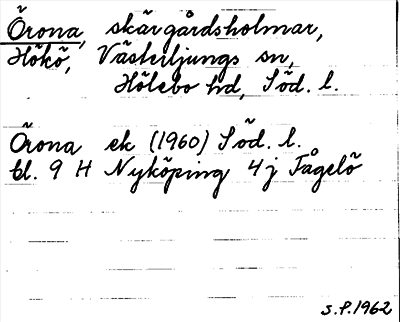 Örona, skärgårdsholmar,
Hökö, Västerljungs sn,
Hölebo hd, Söd. l.
Örona ek (1960) Söd. l.
bl. 9 H Nyköping 4j Fågelö
S.P.1962